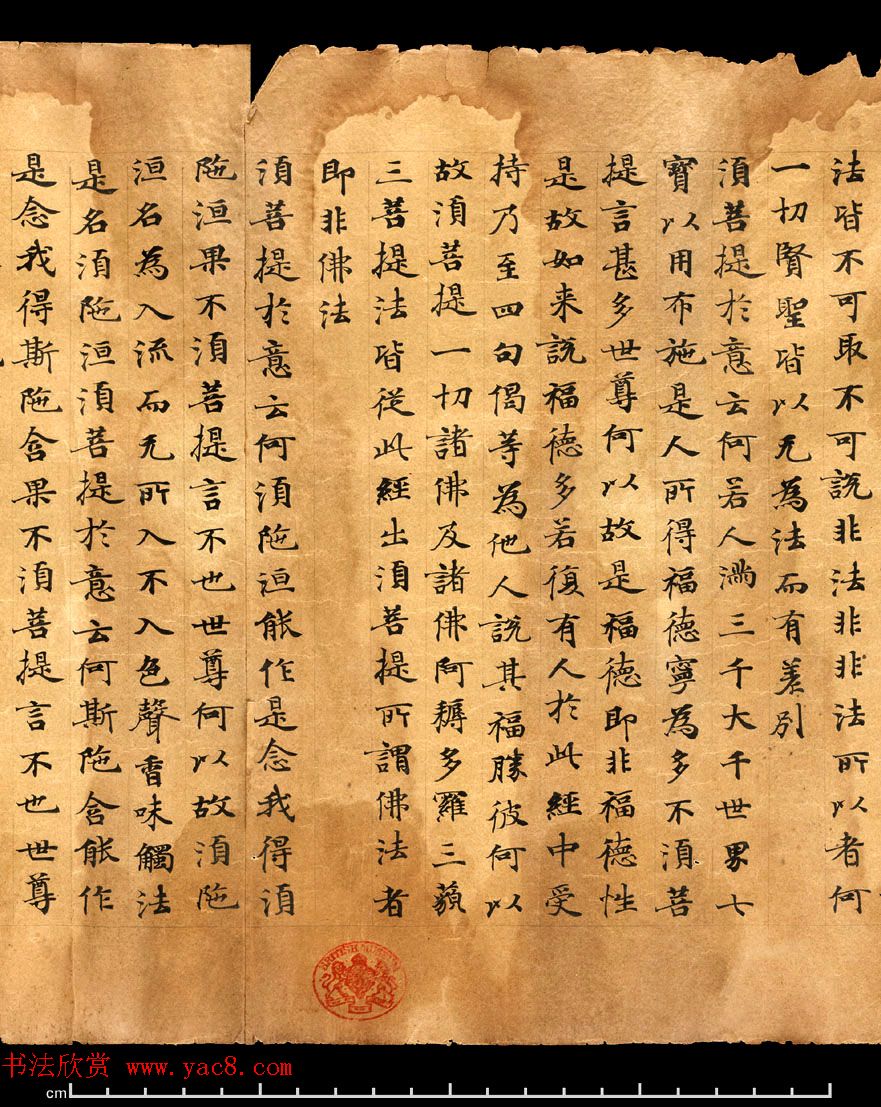 法皆不可取不可說非法非非法所以者何
一切賢聖皆以无為法而有差別
須菩提於意云何若人滿三千大千世界七
寶以用布施是人所得福德寧為多不須菩
提言甚多世尊何以故是福德即非福德性
是故如来說福德多若復有人於此經中受
持乃至四句偈等為他人說其福勝彼何以
故須菩提一切諸佛及諸佛阿耨多羅三藐
三菩提法皆従此經出須菩提所謂佛法者
即非佛法
須菩提於意云何須陁洹能作是念我得須
陁洹果不須菩提言不也世尊何以故須陁
洹名為入流而无所入不入色聲香味觸法
是名須陁洹須菩提於意云何斯陁含能作
是念我得斯陁含果不須菩提言不也世尊
BRITISH MUSEUM
书法欣赏 www.yac8.com
cm